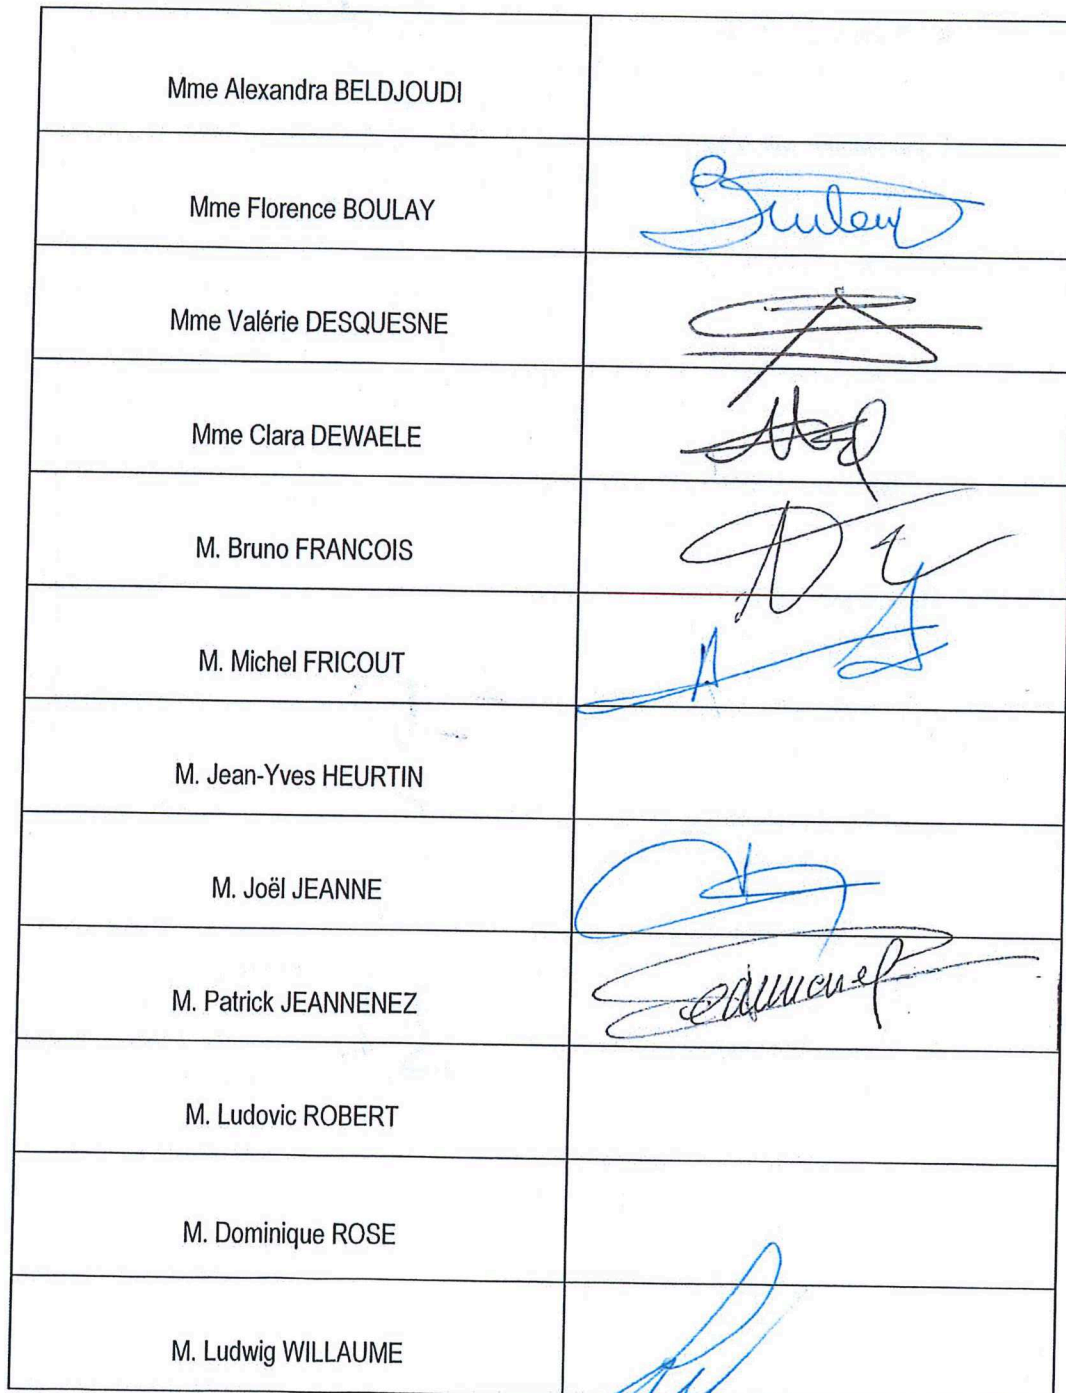 Mme Alexandra BELDJOUDI
Mme Florence BOULAY
Boulay
Mme Valérie DESQUESNE
Mme Clara DEWAELE
M. Bruno FRANCOIS
M. Michel FRICOUT
M. Jean-Yves HEURTIN
M. Joël JEANNE
M. Patrick JEANNENEZ
M. Ludovic ROBERT
M. Dominique ROSE
M. Ludwig WILLAUME